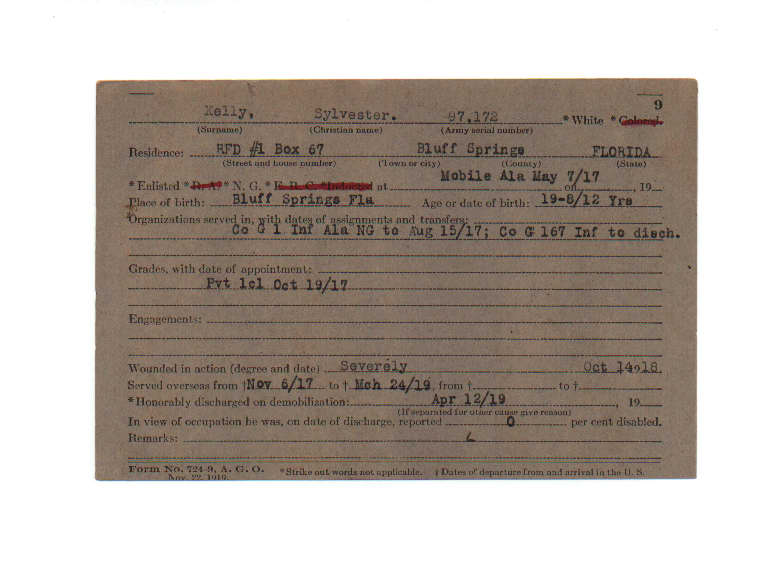 9
Kelly, Sylvester. 97,172 * White * Colored.
(Surname) (Christian name) (Army serial number)
Residence: RFD #1 Box 67 Bluff Springs FLORIDA
(Street and house number) (Town or city) (County) (State)
* Enlisted * R. A. * N. G. * E. R. C. * Inducted at Mobile Ala May 7/17 on , 19
Place of birth: Bluff Springs Fla Age or date of birth: 19-8/12 Yrs
Organizations served in, with dates of assignments and transfers:
Co G 1 Inf Ala NG to Aug 15/17; Co G 167 Inf to disch.
Grades, with date of appointment:
Pvt 1cl Oct 19/17
Engagements:
Wounded in action (degree and date) Severely Oct 14 1918
Served overseas from † Nov 6/17 to † Mch 24/19, from † to †
* Honorably discharged on demobilization: Apr 12/19 , 19
(If separated for other cause give reason)
In view of occupation he was, on date of discharge, reported 0 per cent disabled.
Remarks:
Form No. 724-9, A. G. O. * Strike out words not applicable. † Dates of departure from and arrival in the U. S.
Nov. 22, 1919.